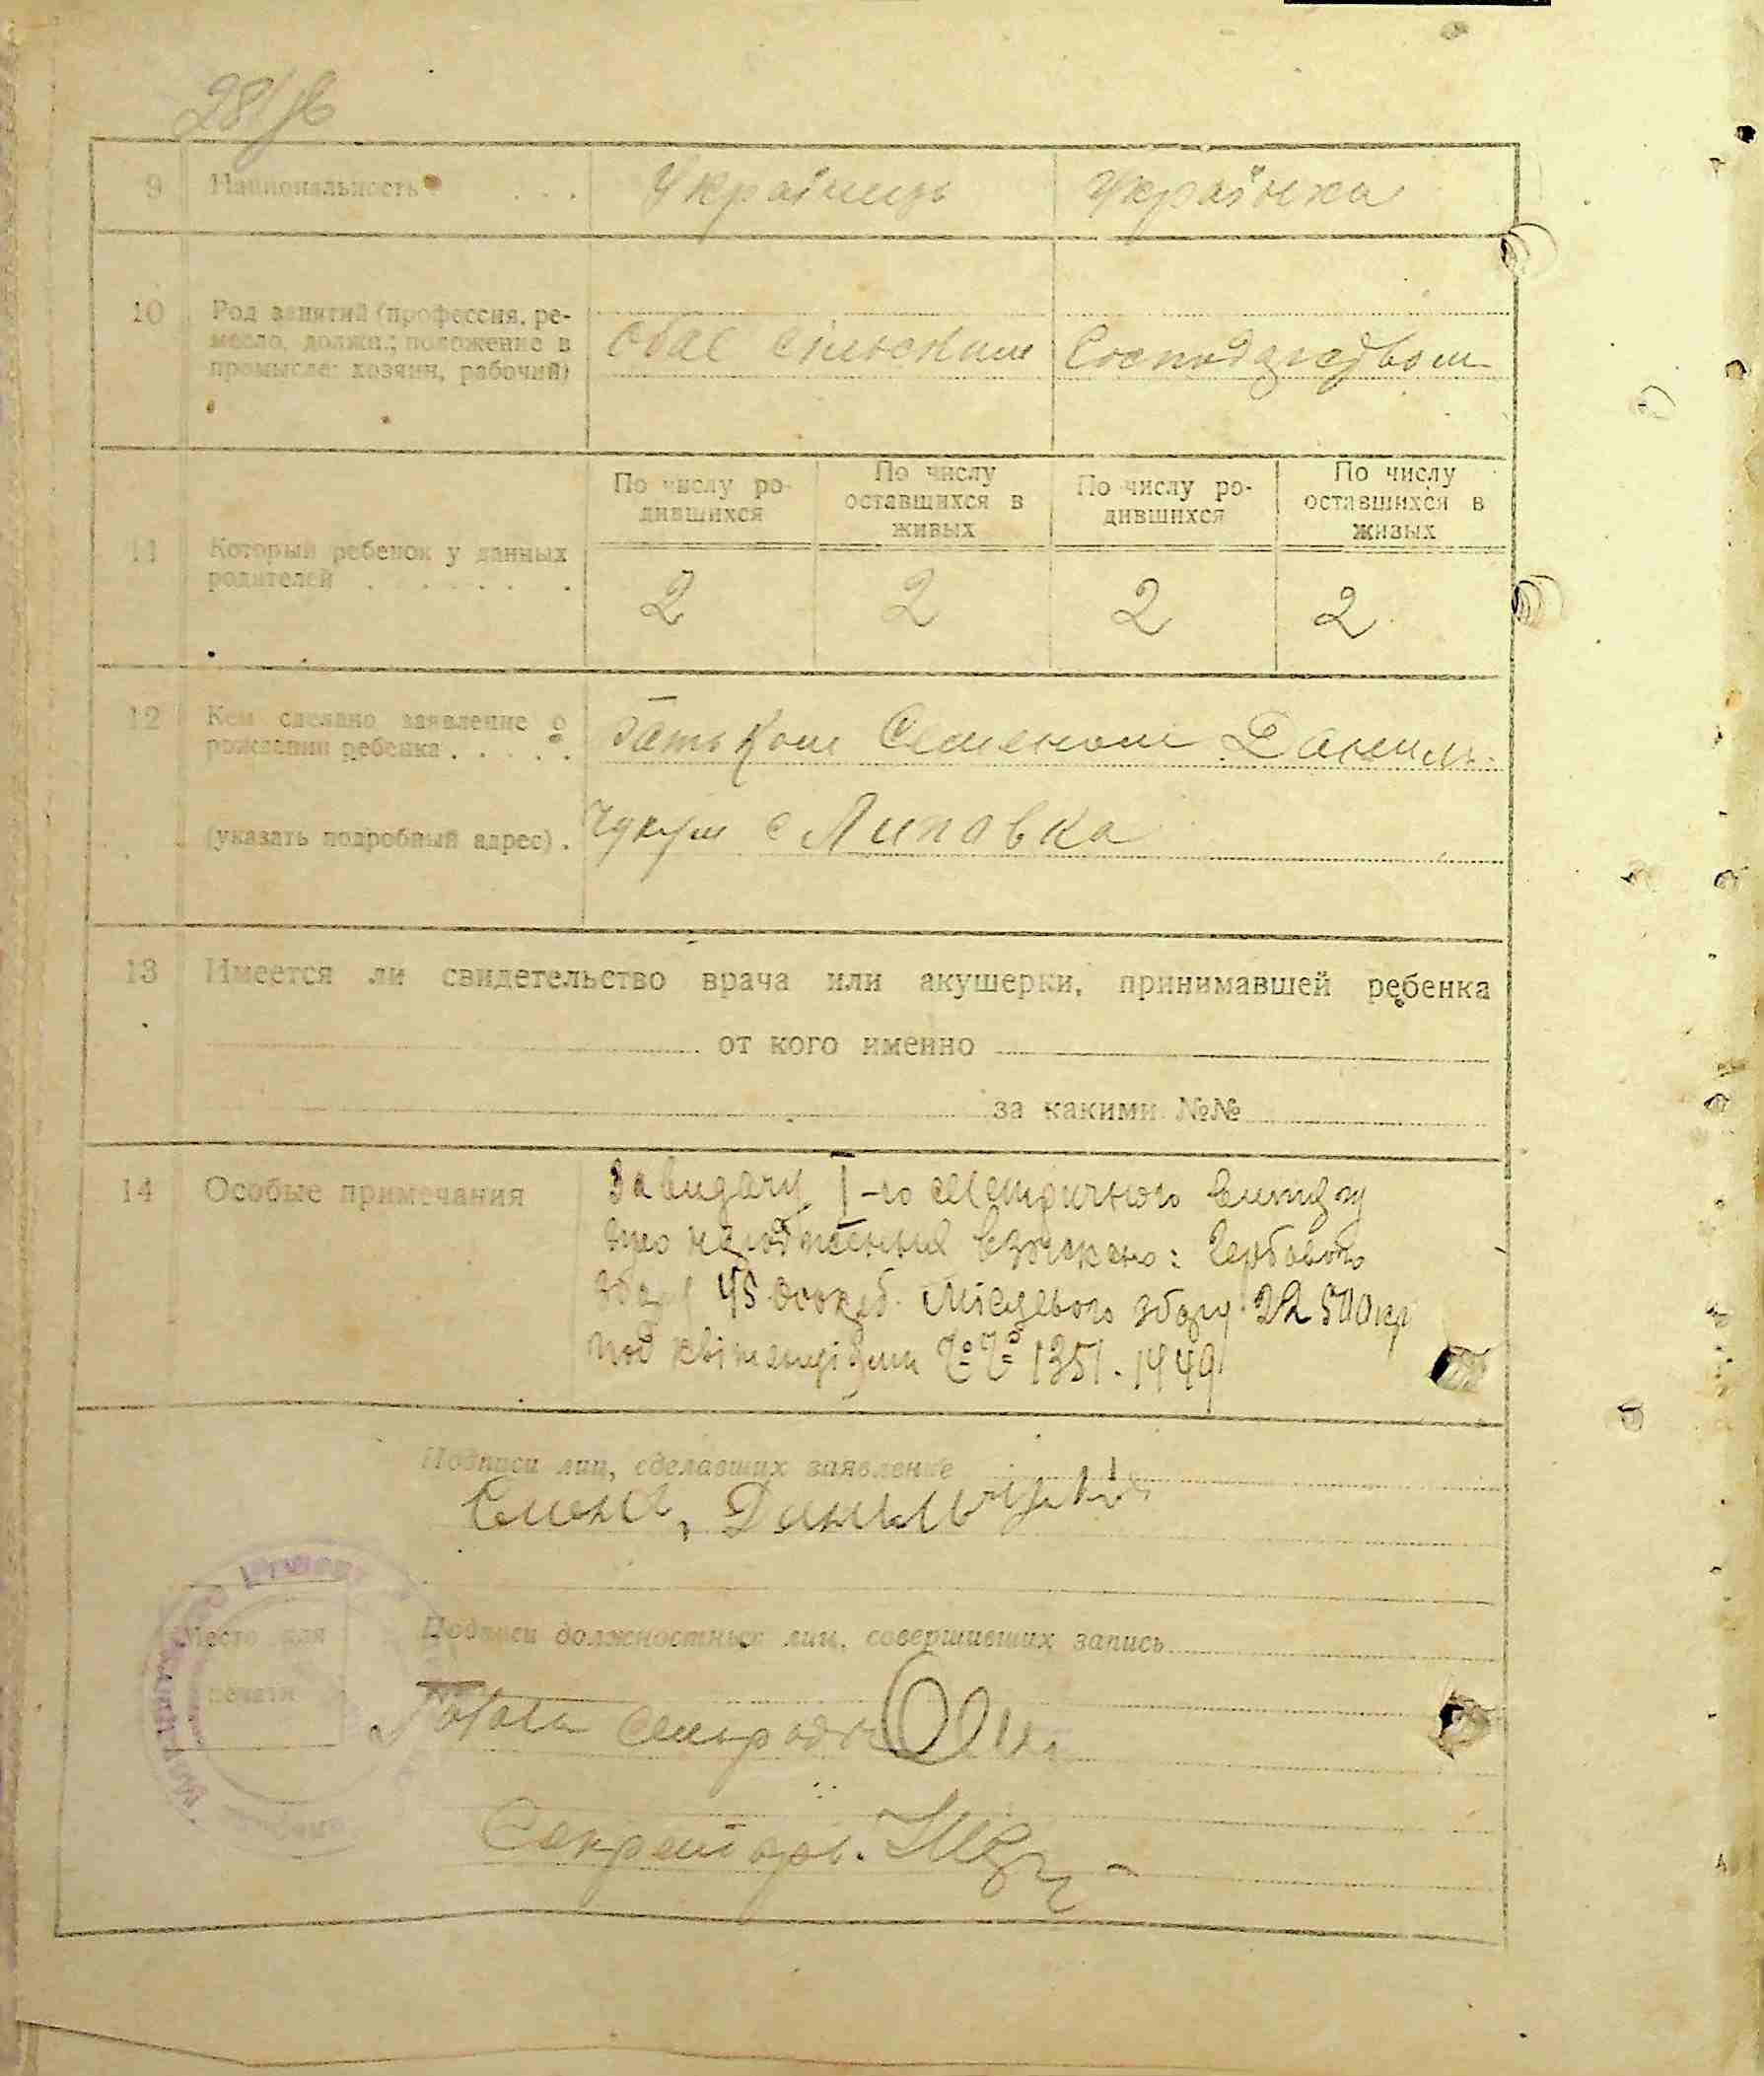 9 Национальность . . . Українець Українка
10 Род занятий (профессия, ре-
месло, должн.; положение в
промысле: хозяин, рабочий)
Обає сільським Господарством
11 Который ребенок у данных
родителей . . . . . .
По числу ро-
дившихся
По числу
оставшихся в
живых
По числу ро-
дившихся
По числу
оставшихся в
живых
2 2 2 2
12 Кем сделано заявление о
рождении ребенка . . . . .
Батьком Семеном Даниль-
(указать подробный адрес) . чуком с Липовка
13 Имеется ли свидетельство врача или акушерки, принимавшей ребенка
от кого именно
за какими №№
14 Особые примечания
За видачу I-го метричного витягу
про народження взыскано: Гербового
збору 45 000крб. Місцевого збору 22 500кр
под квітанціями №№ 1351. 1449
Подписи лиц, сделавших заявление
Данильчук
Место для
печати
Подписи должностных лиц, совершивших запись
Голова сельради
Секретарь.